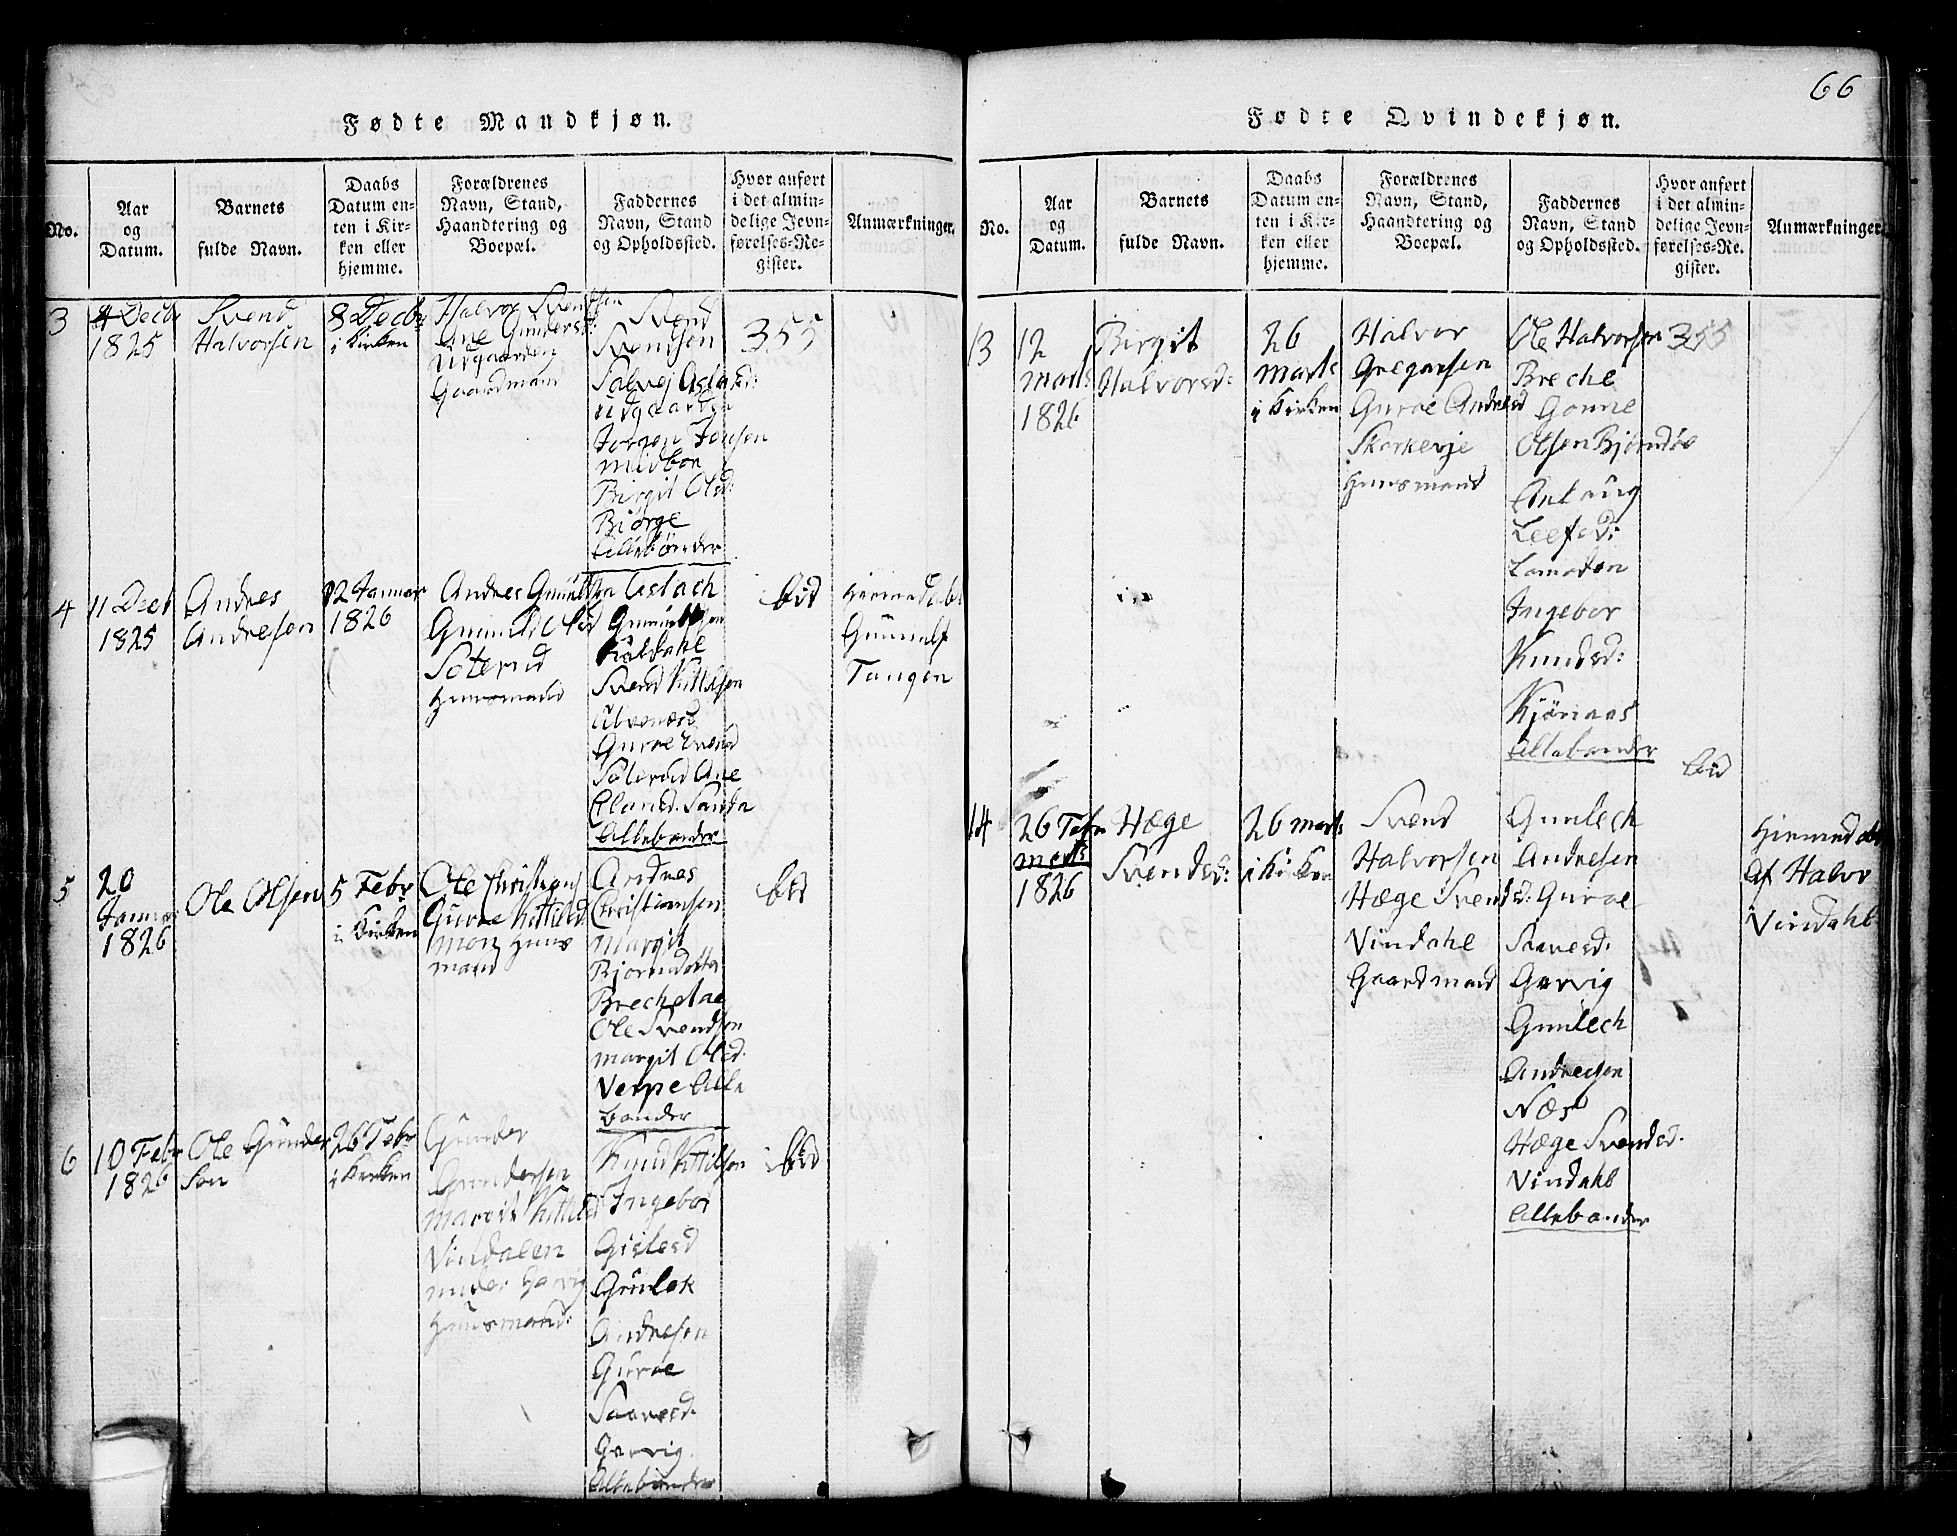 66
Fødte Mandkjøn.
No.
Aar
og
Datum.
Barnets
fulde Navn.
Daabs
Datum en-
ten i Kir-
ken eller
hjemme.
Forældrenes
Navn, Stand,
Haandtering og
Boepæl.
Faddernes
Navn, Stand
og Opholdssted.
Hvor anført
i det almin-
delige Jevn-
førelses-Re-
gister.
Anmærkninger.
3
4 Decbr
1825
Svend
Halvorsen
8 Decbr
i Kirken
Halvor Svendsen
Ane Gundersd:
Udgaarden
Gaardmand
Svend
Svendsen
Salvej Aslaksd:
Udgaarden
Jørgen Jensen
Midboe
Birgit Olsd:
Biørge
Alle bønder
355
4
11 Decb
1825
Andres
Andresen
12 Januar
1826
Andres Gunulfsen
Gunild Olsd
Soterud
Huusmand
Aslach
Gunulfsen
Svend Kittilsen
Guroe
Soterud Ane
Sanda
Alle bønder
bid
Hiemedøbt
Gunulf
Tangen
5
20
Januar
1826
Ole Olsen
5 Febr
i Kirken
Ole Christians
Guroe Kittilsd
Moen Huus
mand
Andres
Christiansen
Margit
Bjørnsdatter
Ole Svendsen
Margit Olsd.
Verpe Alle
bønder
bid
6
10 Febr
1826
Ole Gunder
Søn
26 Febr
i Kirken
Gunder
Gundersen
Margit Kittilsd
Vindalen
under Garvig
Huusmand:
Knud Kittilsen
Ingebor
Gislesd
Gunlek
Andresen
Guroe
Saavesd.
Garvig.
Alle bønder
bid
Fødte Qvindekjøn.
No.
Aar
og
Datum.
Barnets
fulde Navn.
Daabs
Datum en-
ten i Kir-
ken eller
hjemme.
Forældrenes
Navn, Stand,
Haandtering og
Boepæl.
Faddernes
Navn, Stand
og Opholdssted.
Hvor anført
i det almin-
delige Jevn-
førelses-Re-
gister.
Anmærkninger
13
12
Marts
1826
Birgit
Halvorsd:
26
Marts
i Kirken
Halvor
Gregarsen
Guroe Andresd
Skorkevje
Huusmand
Ole Halvorsen
Breche
Gonne
Olsen Bjørndøe
Anlaug
Leefsd:
Ingebor
Knudsd:
Kjønaas
Alle bønder
355
14
26 Febr
Marts
1826
Hæge
Svendsd:
26 Marts
i Kirken
Svend
Halvorsen
Hæge Svendsd:
Vindahl
Gaardmand
Gunlech
Andresen
Guroe
Saavesd:
Garvig
Gunlech
Andresen
Næs
Hæge Svendsd.
Vindahl
Alle bønder
bid
Hiemmedøbt
Af Halvor
Vindahl